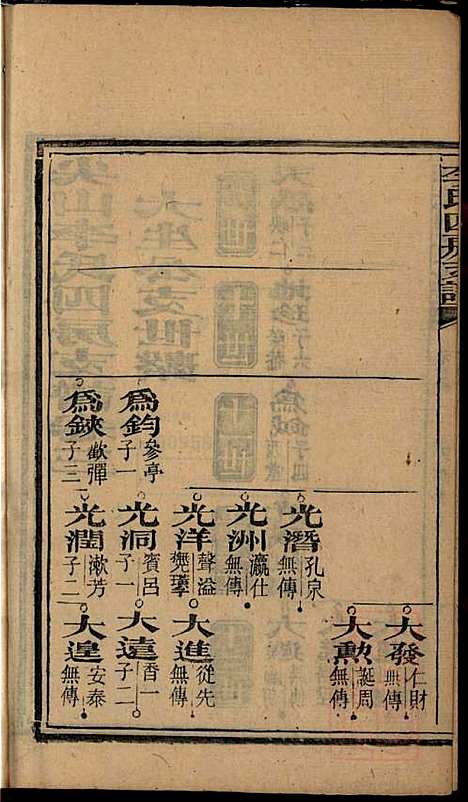 李氏四房支譜
光潛 孔泉 無傳
光洲 瀛仕 無傳
為鈞 參亭 子一
為鋏 歡彈 子三
光洋 聲溢
光洞 賓呂 子一
光潤 漱芳 子二
大發 仁財 無傳
大勲 誕周 無傳
大進 從先 無傳
大遠 香一 子二
大遑 安泰 無傳